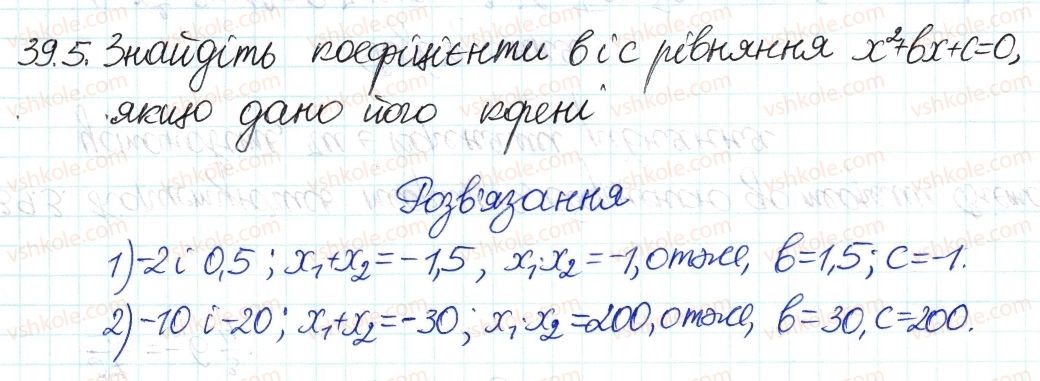 39.5. Знайдіть коефіцієнти в і с рівняння x²+вx+c=0,
якщо дано його корені
Розв'язання
1) -2 і 0,5; x₁+x₂=-1,5, x₁·x₂=-1, отже, в=1,5; c=-1.
2) -10 і -20; x₁+x₂=-30; x₁·x₂=200, отже, в=30, c=200.